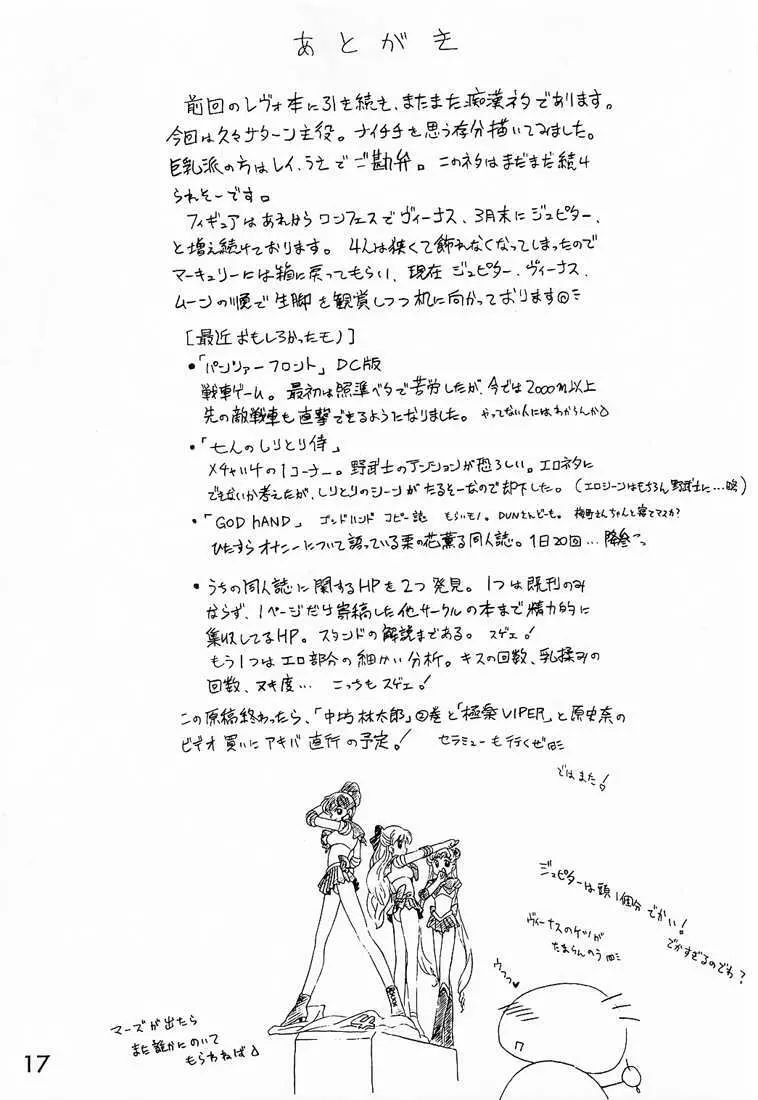 あとがき
前回のレヴォ本に引き続き、またまた痴漢ネタであります。
今回は久々サターン主役。ナイチチを思う存分描いてみました。
巨乳派の方はレイ、うえでご勘弁。このネタはまだまだ続け
られそーです。
フィギュアはあれからワンフェスでヴィーナス、3月末にジュピター、
と増え続けております。4人は狭くて飾れなくなってしまったので
マーキュリーには箱に戻ってもらい、現在ジュピター、ヴィーナス、
ムーンの順で生脚を観賞しつつ机に向かっております
[最近おもしろかったモノ]
•「パンツァーフロント」DC版
戦車ゲーム。最初は照準ベタで苦労したが、今では2000m以上
先の敵戦車も直撃できるようになりました。やってない人にはわからんか
•「七人のしりとり侍」
メチャイケの1コーナー。野武士のテンションが恐ろしい。エロネタに
できないか考えたが、しりとりのシーンがたるそーなので却下した。(エロシーンはもちろん野武士に…略)
•「GOD HAND」ゴッドハンド コピー誌 もらいモノ。DUNさんどーも。
ひたすらオナニーについて語っている栗の花薫る同人誌。1日20回…降参
• うちの同人誌に関するHPを2つ発見。1つは既刊のみ
ならず、1ページだけ寄稿した他サークルの本まで精力的に
集収してるHP。スタンドの解説まである。スゲェ!
もう1つはエロ部分の細かい分析。キスの回数、乳揉みの
回数、ヌキ度… こっちもスゲェ!
この原稿終わったら、「中坊林太郎」②巻と「極楽VIPER」と原史奈の
ビデオ買いにアキバ直行の予定。! セラミューも行くぜ
ではまた!
ジュピターは頭1個分でかい!
でかすぎるのでわ?
ヴィーナスのケツが
たまらんのう
ウフっ
マーズが出たら
また誰かにのいて
もらわねば
17